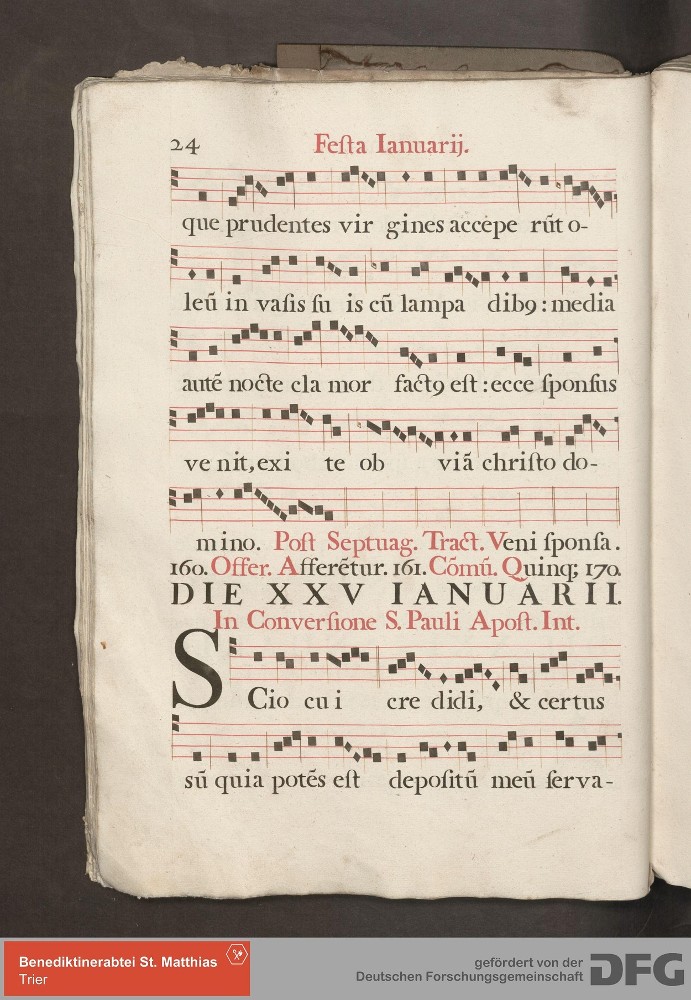 24 Feſta Ianuarij.
que prudentes vir gines accepe rūt o-
leū in vaſis ſu is cū lampa dibꝯ : media
autē nocte cla mor factꝯ eſt : ecce ſponſus
ve nit, exi te ob viā chriſto do-
mino. Poſt Septuag. Tract. Veni ſponſa.
160. Offer. Afferētur. 161. Cōmū. Quinq; 170.
DIE XXV IANUARII.
In Converſione S. Pauli Apoſt. Int.
SCio cu i cre didi, & certus
sū quia potēs eſt depoſitū meū ſerva-
Benediktinerabtei St. Matthias
Trier
gefördert von der
Deutschen Forschungsgemeinschaft DFG